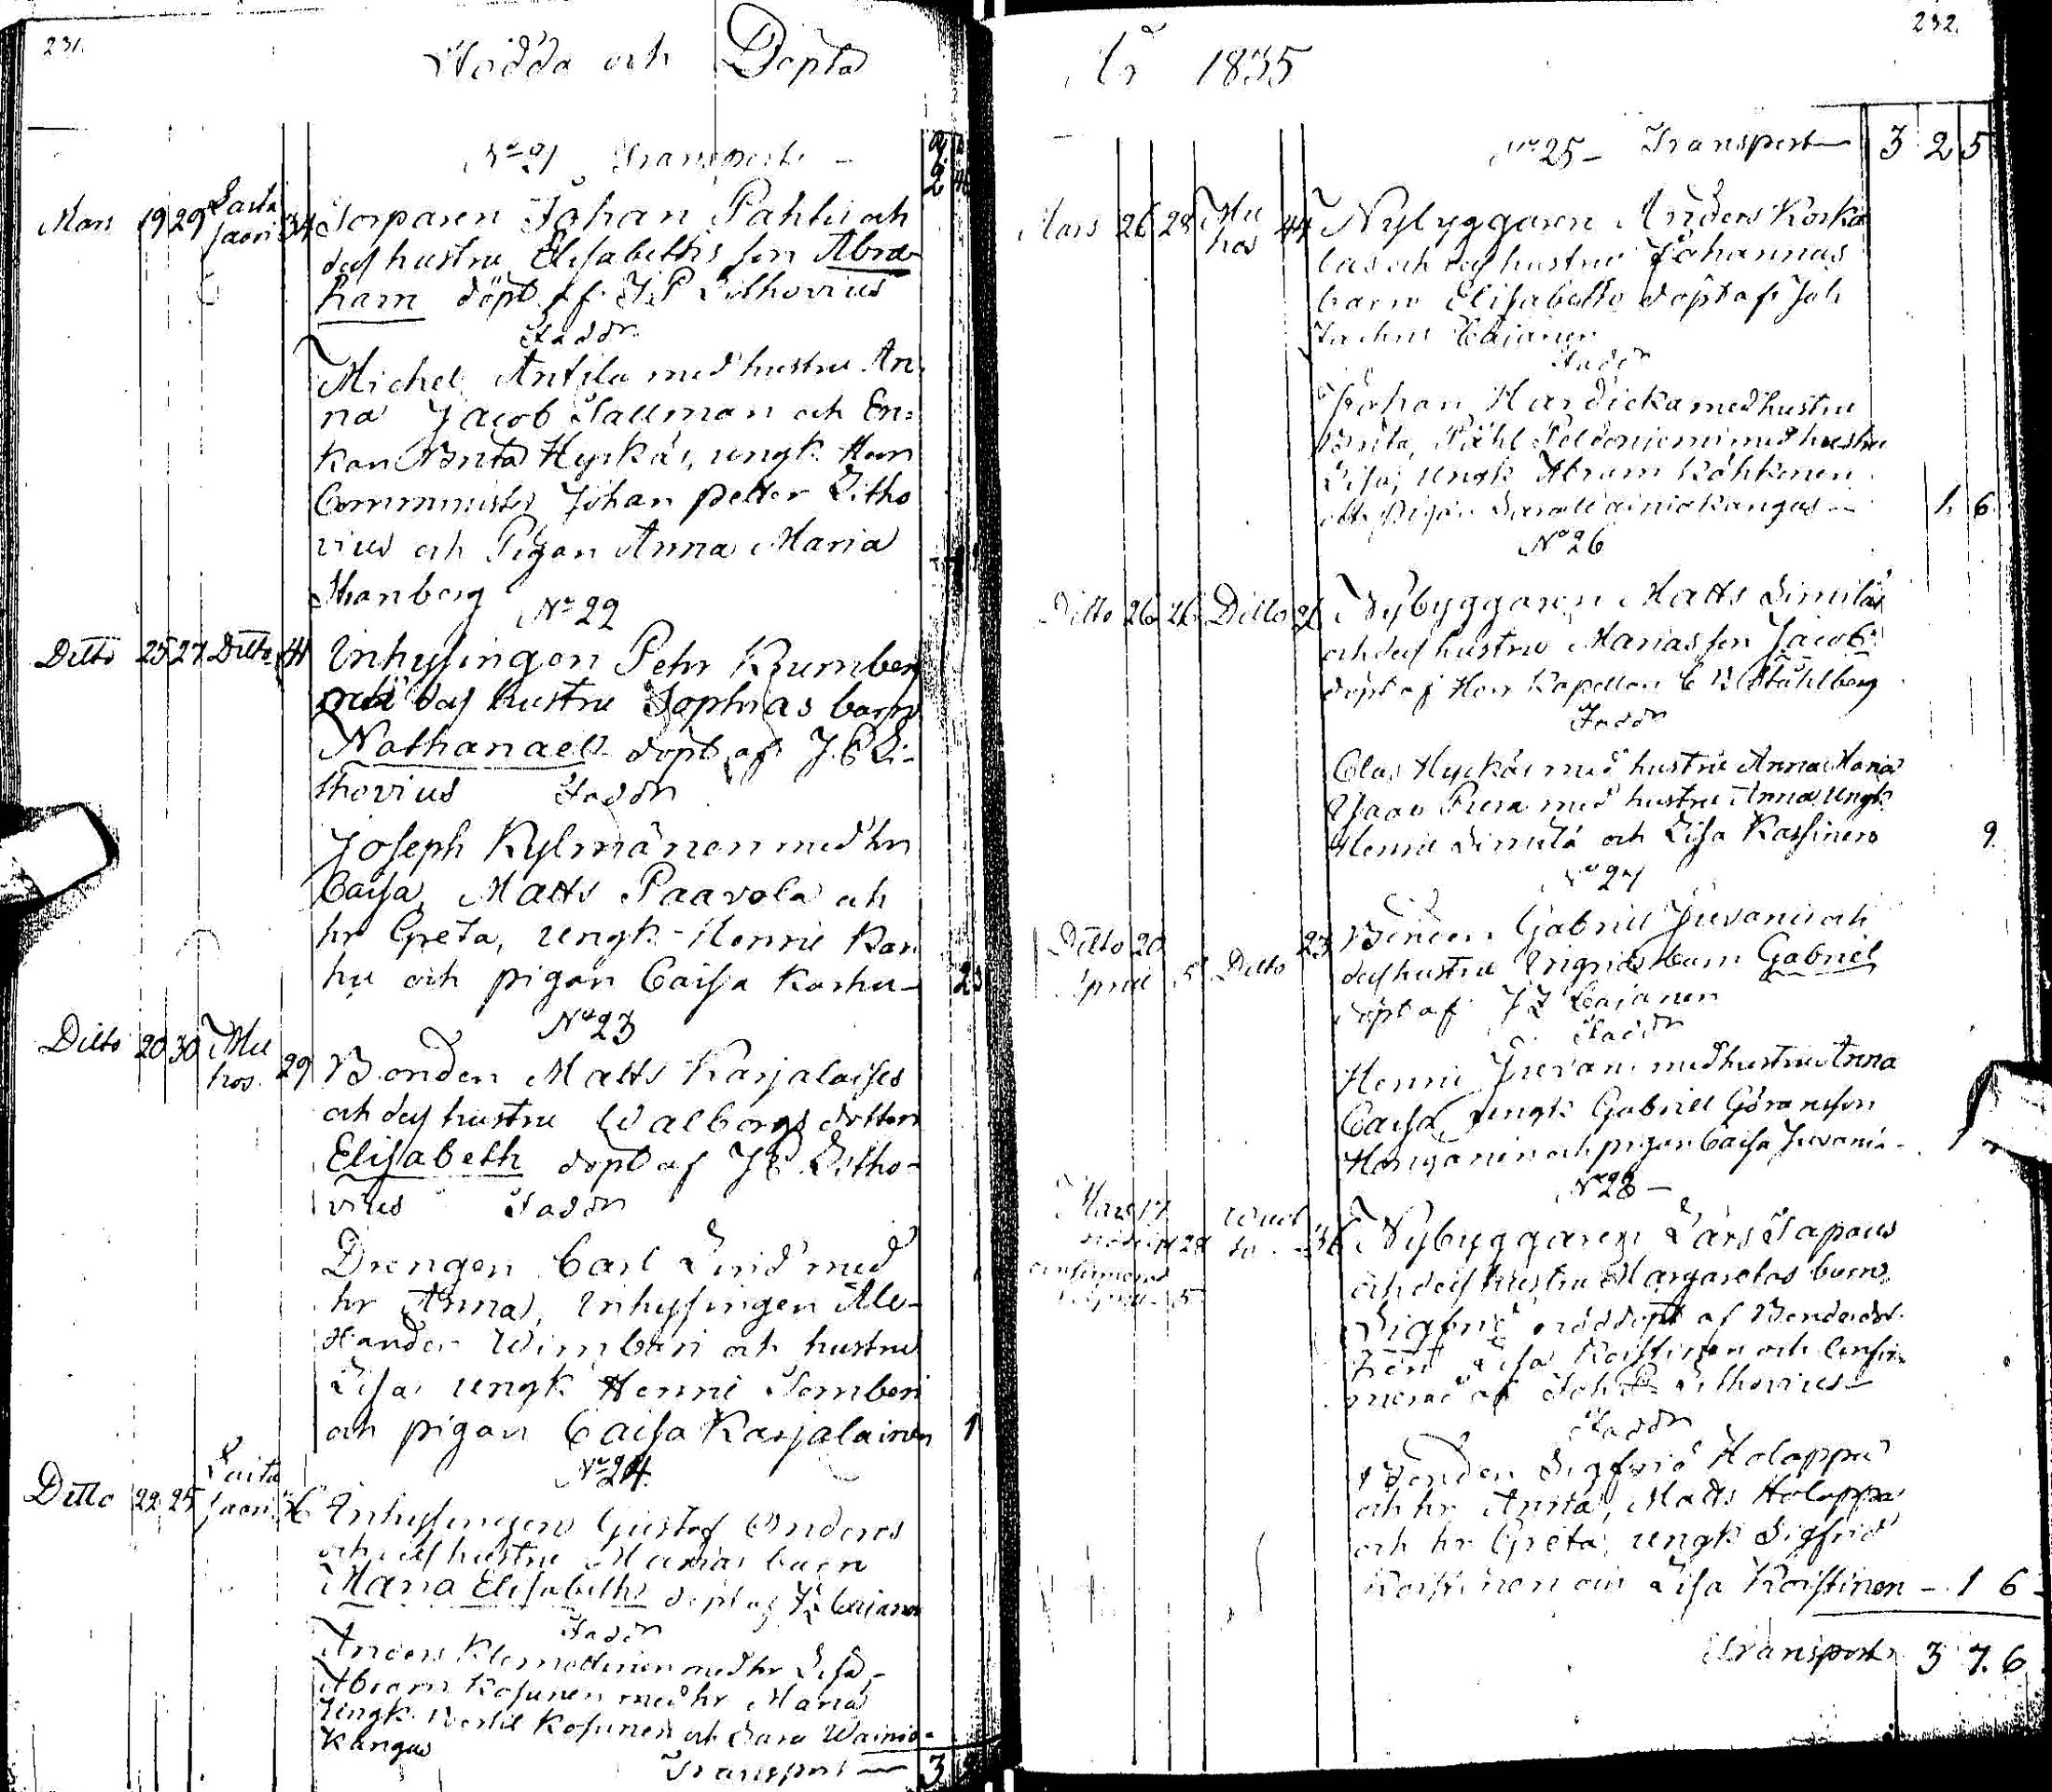 231.
Födda och Döpta
No 21 Transport
Mars 19 29 Laita saari 34 Torparen Johan Pahtis och
dess hustru Elisabethis son Abra-
ham döpt af J P Lithovius
Faddr
Michel Antila med hustru An-
na Jacob Sallman och En=
kan Brita Hyrkäs, ungk. Herr
Communister Johan petter Litho
vius och Pigan Anna Maria
No 22
Ditto 25 27 Ditto 41 Inhysingen Pehr Krumberg
och dess hustru Sophias barn
Nathanael döpt af J. P Li-
thovius Faddr
Joseph Kylmänen med hr
Caisa, Matts Paavola och
hr Greta, ungk. Henric Kar
hu och pigan Caisa Karhu-
No 23
Ditto 20 30 Mu hos. 29 Bonden Matts Karjalaises
och dess hustru Walborgs dotter
Elisabeth döpt af J P Litho-
vius Faddr
Drengen Carl Lind med
hr Anna, Inhysingen Ale-
xander Wimberi och hustru
Lisa, ungk Henric Tomberi
och pigan Caisa Karjalainen 1
No 24.
Ditto 22 25 Laita saari Inhysingen Gustaf Anderos
och dess hustru Marias barn
Maria Elisabeth döpt af J Z Cajanen
Faddr
Anders Klemettinen med hr Lisa,
Abram Kosunen med hr Maria
Ungk. Bertil Kosunen och Sara Wainio-
kangas
Transport — 3
232.
År 1835
No 25 - Transport — 3 2 5
Mars 26 28 Mu hos 44 Nybyggaren Anders Korka
las och dess hustru Johannas
barn Elisabeth döpt af Joh
Zachris Cajanen
Faddr
Johan Hardicka med hustru
Brita, Påhl Peldoniemi med hustru
Lisa, ungk Abram Kähkenen
och Pigan Sara Wainiokangas — 1. 6.
No 26
Ditto 26 26 Ditto Nybyggaren Matts Similäs
och dess hustru Marias son Jacob
döpt af Herr Kapellan C R Ståhlberg
Faddr
Clas Hyrkäs med hustru Anna Maria
Isaac Pura med hustru Anna, ungk
Henric Similä och Lisa Kassinen 9.
No 27
Ditto 20 April 5 Ditto 23 Bonden Gabriel Juvanis och
dess hustru Brigitas barn Gabriel
döpt af J Z Cajanen
Faddr
Henric Juvani med hustru Anna
Caisa, ungk Gabriel Göransson
Hanganen och pigan Caisa Juvani - 1
No 28 -
Mars 17 Nybyggaren Lars Tapanis
och dess hustru Margaretas barn
Sigfrid nöddöpt af
Lisa Koistinen och Confir-
merad af Joh P Lithovius
Faddr
Bonden Sigfrid Holappa
och hr Anna, Matts Holappa
och hr Greta, ungk Sigfrid
Koistinen och Lisa Koistinen - 1 6 -
Transport 3 7. 6